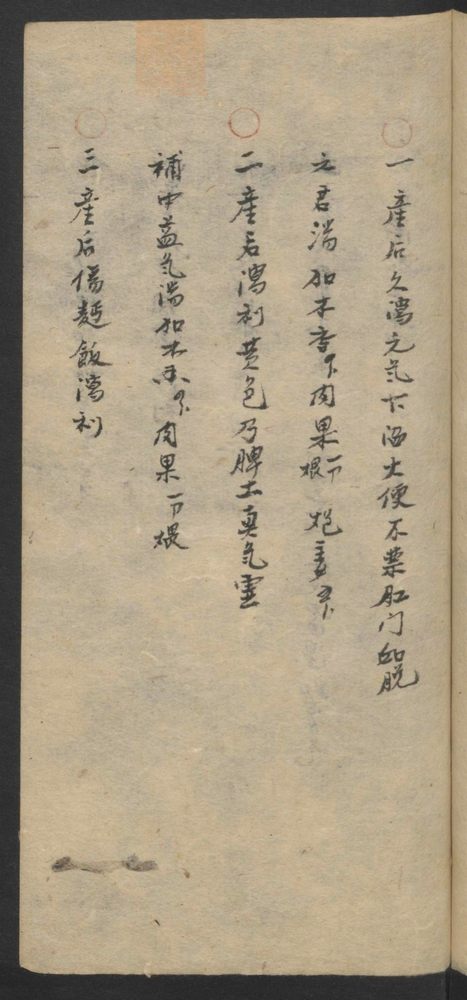 一產后久瀉元气下陷大便不禁肛门如脱
六君湯加木香下肉果一煨炮姜五卜
二產后瀉利黄色乃脾土真气虚
補中益气湯加木香下肉果一煨
三產后傷麺飯瀉利